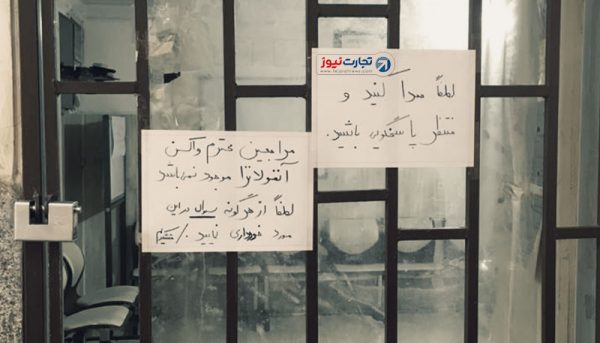 تجارت‌نیوز
www.tejaratnews.com
لطفاً صدا کنید و
منتظر پاسخگویی باشید.
مراجعین محترم واکسن
آنفولانزا موجود نمی‌باشد
لطفاً از هرگونه سوال در این
مورد خودداری نمایید. / متشکریم